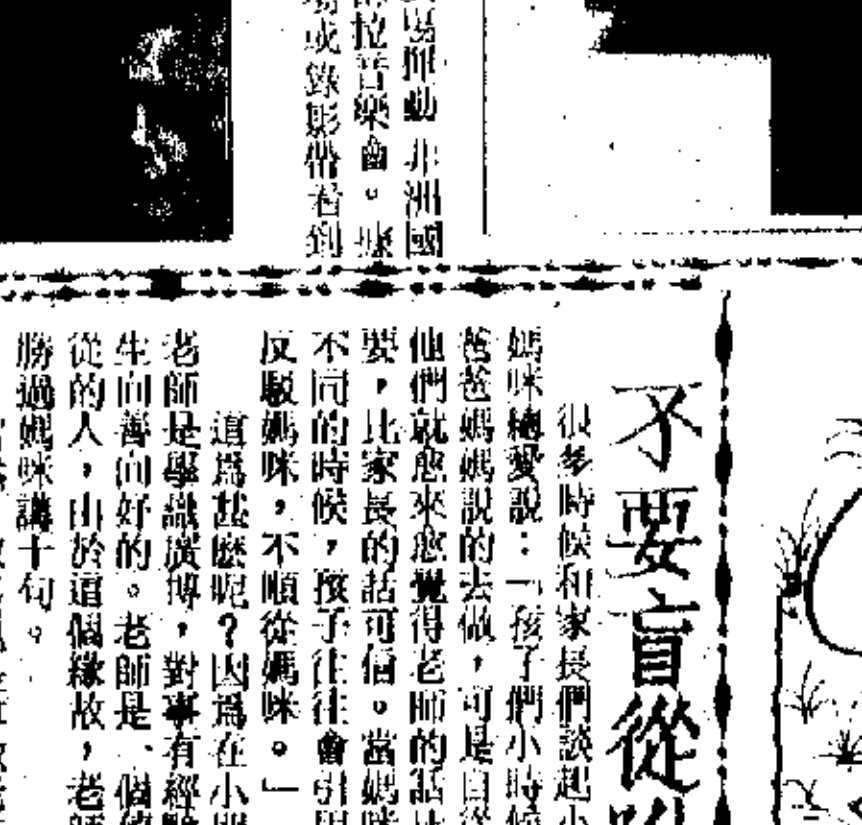 揮動非洲國
拉音樂會。
或錄影帶看到
不要盲從
很多時候和家長們談起小
媽咪總愛說：「孩子們小時候
爸爸媽媽說的去做，可是自從
他們就愈來愈覺得老師的話
要，比家長的話可信。當媽咪
不同的時候，孩子往往會引用
反駁媽咪，不順從媽咪。」
這爲甚麼呢？因爲在小
老師是學識廣博，對事有經驗
生向善向好的。老師是一個
從的人，由於這個緣故，老師
勝過媽咪講十句。